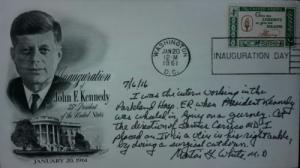 WASHINGTON
JAN 20
12-M
1961
D.C.
INAUGURATION DAY
Inauguration
of
John F. Kennedy
35th President
of the United States
JANUARY 20, 1961
7/6/16
I was the intern working in the
Parkland Hosp. ER when President Kennedy
was wheeled in by me on a gurney. At
the direction of Charles Carrico MD I
placed an IV in a vein in his right ankle,
by doing a surgical cutdown.
Martin G. White, M.D.